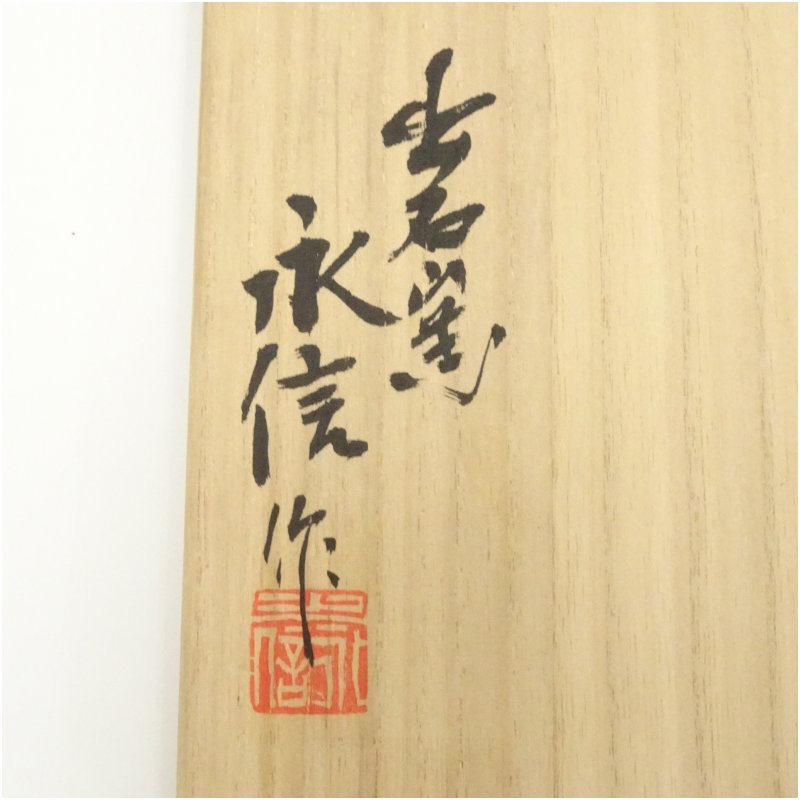 出石窯
永信作